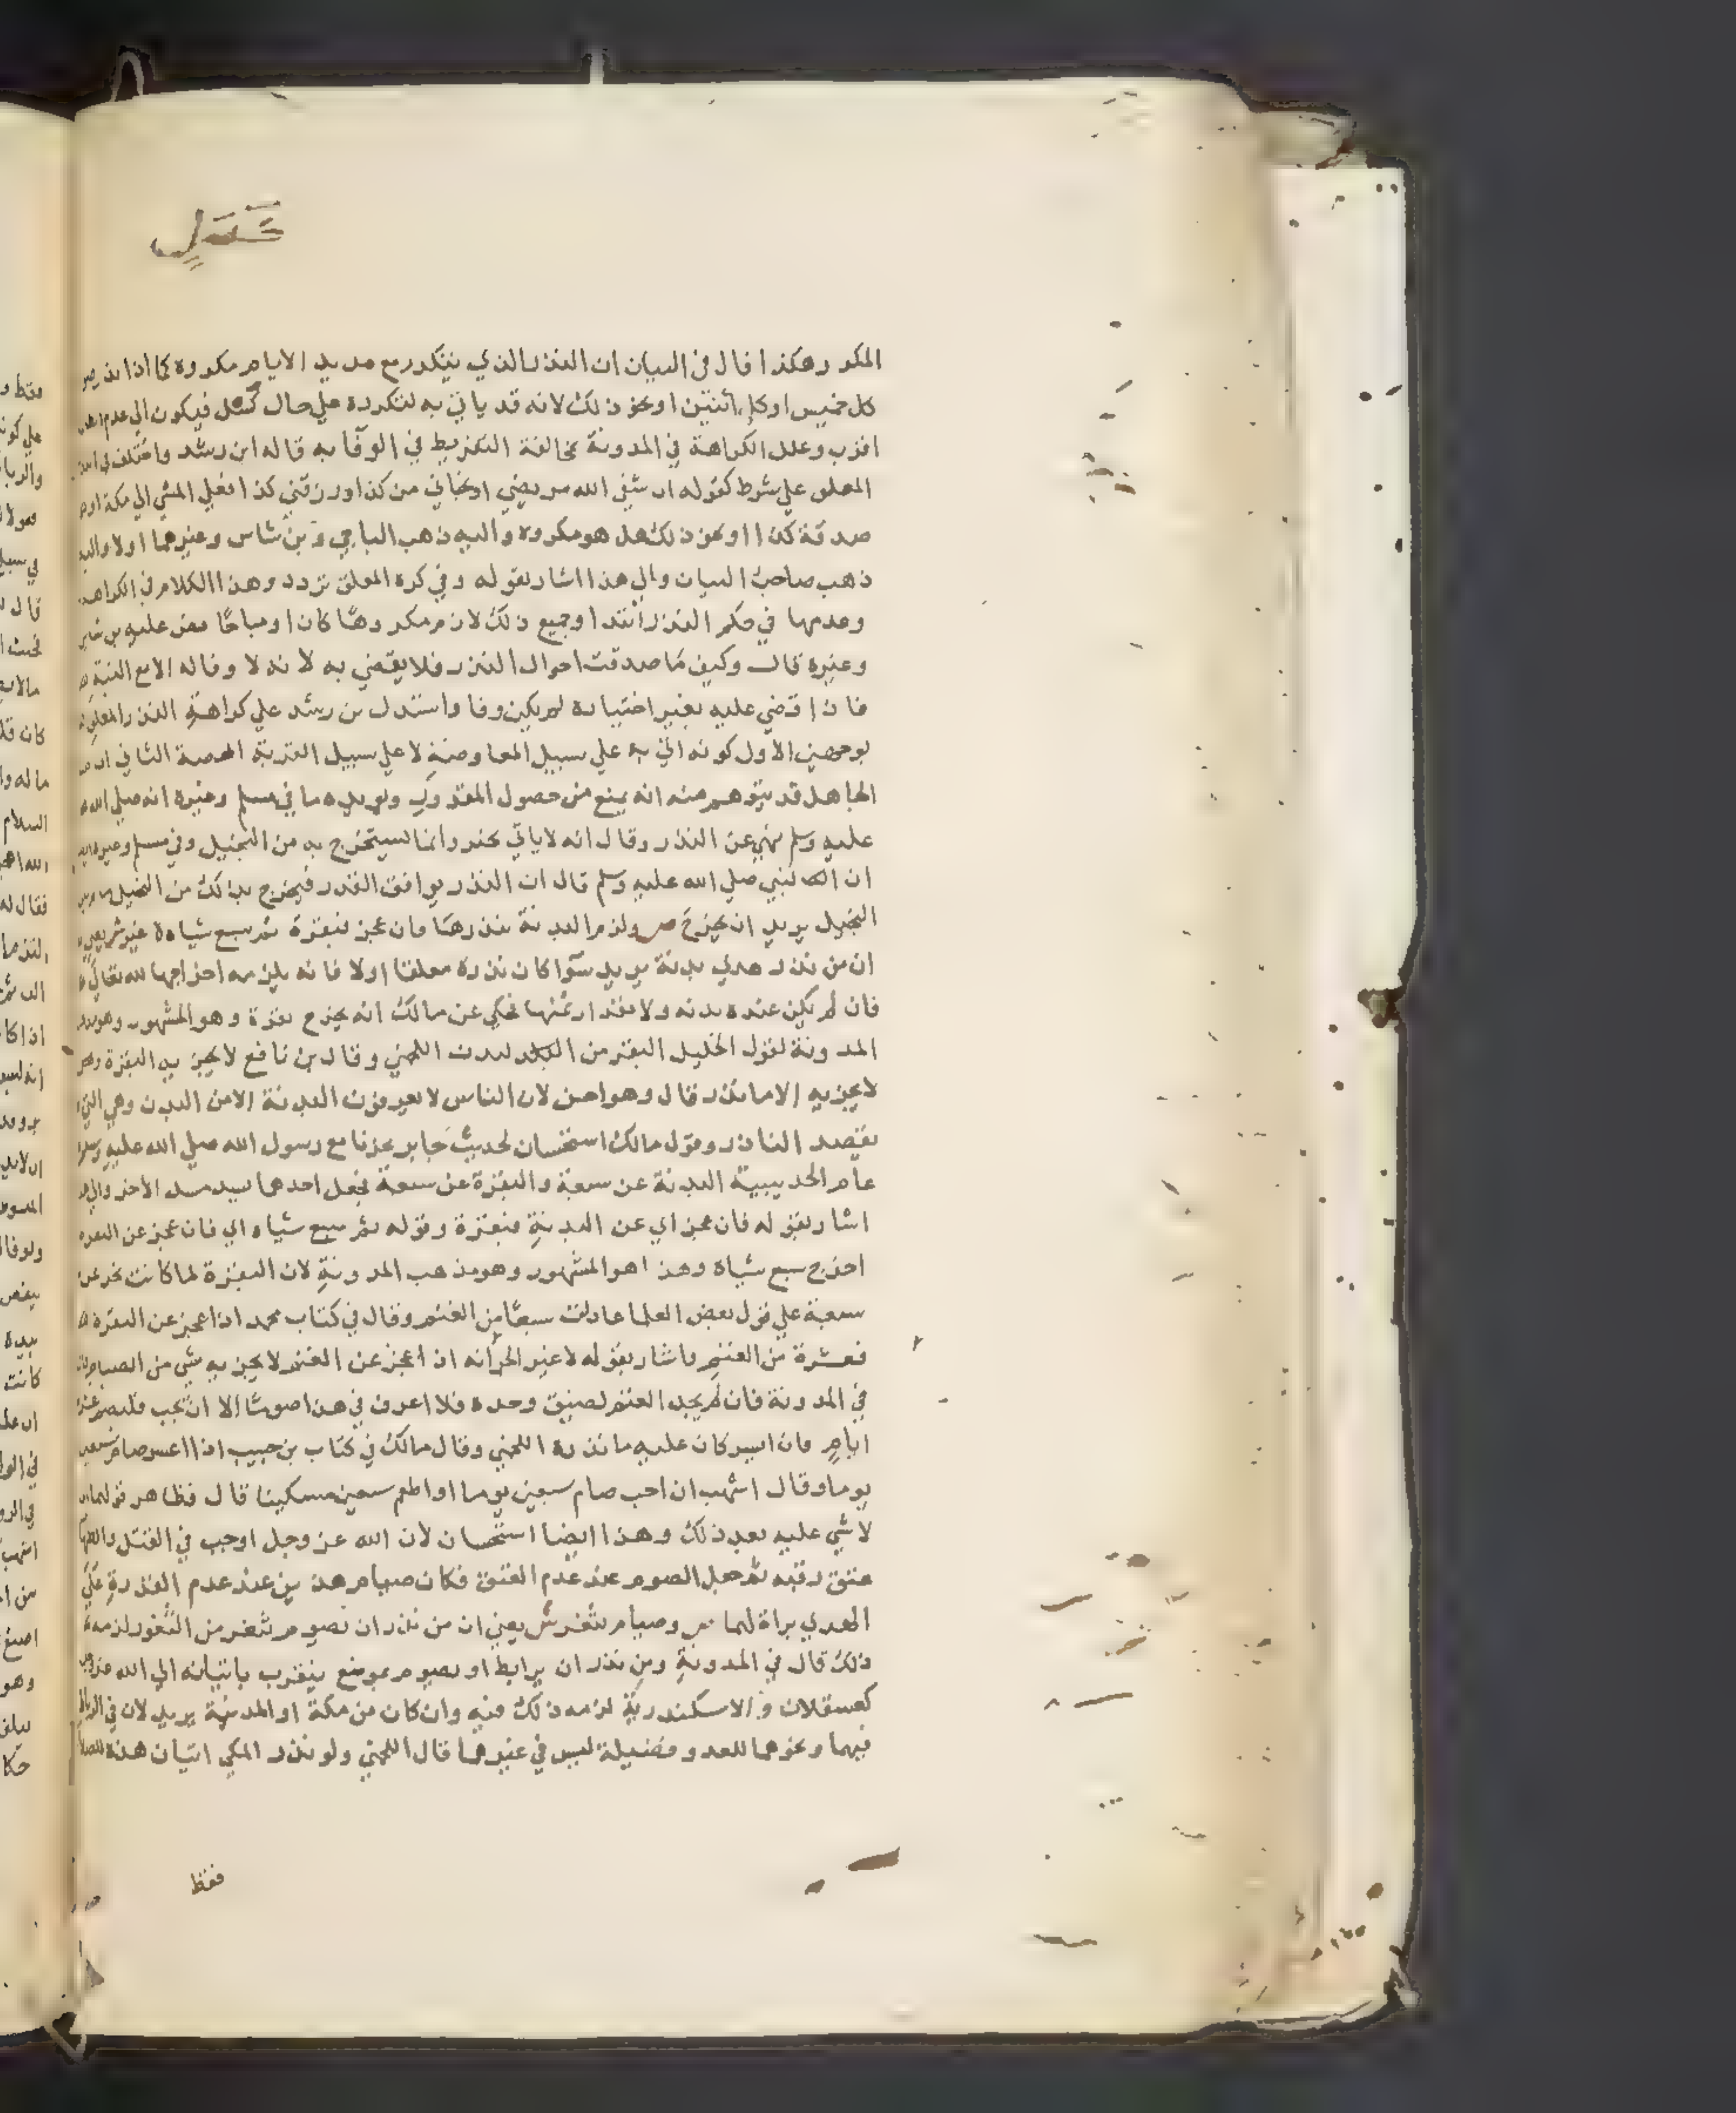 المكرر وهكذا قال في البيان ان النذر الذي يتكرر مع مديد الايام مكروه كما اذا نذر صو
كل خميس او كل اثنين او نحو ذلك لانه قد ياتي به لتكرره علي حال كسل فيكون الي عدم
اقرب وعلل الكراهة في المدونة مخالفة التفريط في الوفا به قاله ابن رشد واختلف في
المعلق علي شرط كقوله ان شفي الله مريضي او نجاني من كذا او رزقني كذا فعلي المشي الي مكة او
صدقة كذا او نحو ذلك هل هو مكروه واليه ذهب الباجي وبن شاس وغيرهما اولا واليه
ذهب صاحب البيان والي هذا اشار بقوله وفي كره المعلق تردد وهذا الكلام في الكراهة
وعدمها في حكم النذر ابتدا وجميع ذلك لازم مكروها كان او مباحا نص عليه بن شاس
وغيره قال وكيف ما صدقت احوال النذر فلا يقضي به لا نه لا وفا له الا مع النية
فاذا قضي عليه بغير اختياره لم يكن وفا واستدل بن رشد علي كراهة النذر المعلق
بوجهين الاول كونه اتي به علي سبيل المعاوضة لا علي سبيل القربة المحضة الثاني ان
الجاهل قد يتوهم منه انه يمنع من حصول المقدور ويويده ما في مسلم وغيره انه صلي الله
عليه وسلم نهي عن النذر وقال انه لا ياتي بخير وانما يستخرج به من البخيل وفي مسلم وغيره
ان النبي صلي الله عليه وسلم قال ان النذر يوافق القدر فيخرج بذلك من البخيل
البخيل يريد ان يخرج ص ولزم البدنة بنذرها فان عجز فبقرة ثم سبع شياه لا غير ش يعني
ان من نذر هدي بدنة يريد سوا كان نذره معلقا اولا فانه يلزمه اخراجها لله تعالي
فان لم يكن عنده بدنه ولا مقدار ثمنها فحكي عن مالك انه يخرج بقرة وهو المشهور وهو
المدونة لقول الخليل البقر من البدن اللخمي وقال بن نافع لا يجزيه البقرة
لا يجزيه الا ما نذر قال وهو احسن لان الناس لا يعرفون البدنة الا من البدن وهي التي
يقصد الناذر وقول مالك استحسان لحديث جابر نحرنا مع رسول الله صلي الله عليه وسلم
عام الحديبية البدنة عن سبعة والبقرة عن سبعة فجعل احدهما يسد مسد الاخر والي
اشار بقوله فان عجز اي عن البدنة فبقرة وقوله ثم سبع شياه اي فان عجز عن البقره
اخرج سبع شياه وهذا هو المشهور وهو مذهب المدونة لان البقرة لما كانت تجزي عن
سبعة علي قول بعض العلما عادلت سبعا من الغنم وقال في كتاب محمد اذا عجز عن البقرة
فعشرة من الغنم واشار بقوله لا غير الي انه ان اعجز عن الغنم لا يجزيه شي من الصيام
في المدونة فان لم يجد الغنم لضيق وجده فلا اعرف في هذا صوما الا ان يحب فليصم عشرة
ايام فان ايسر كان عليه ما نذره اللخمي وقال مالك في كتاب بن حبيب اذا اعسر صام سبعين
يوما وقال اشهب ان احب صام سبعين يوما او اطعم سبعين مسكينا قال فظاهر قولهما ان
لا شي عليه بعد ذلك وهذا ايضا استحسان لان الله عز وجل اوجب في القتل والظهار
عتق رقبه ثم جعل الصوم عند عدم العتق فكان صيام هذين عند عدم القدرة علي
الهدي براة لهما ص وصيام بثغر ش يعني ان من نذر ان يصوم بثغر من الثغور لزمه
ذلك قال في المدونة ومن نذر ان يرابط او يصوم بموضع يتقرب باتيانه الي الله عز وجل
كعسقلان والاسكندرية لزمه ذلك فيه وان كان من مكة او المدينة يريد لان في الرباط
فيهما ونحوهما للعدو فضيلة ليس في غيرهما قال اللخمي ولو نذر المكي اتيان هذه
فقط